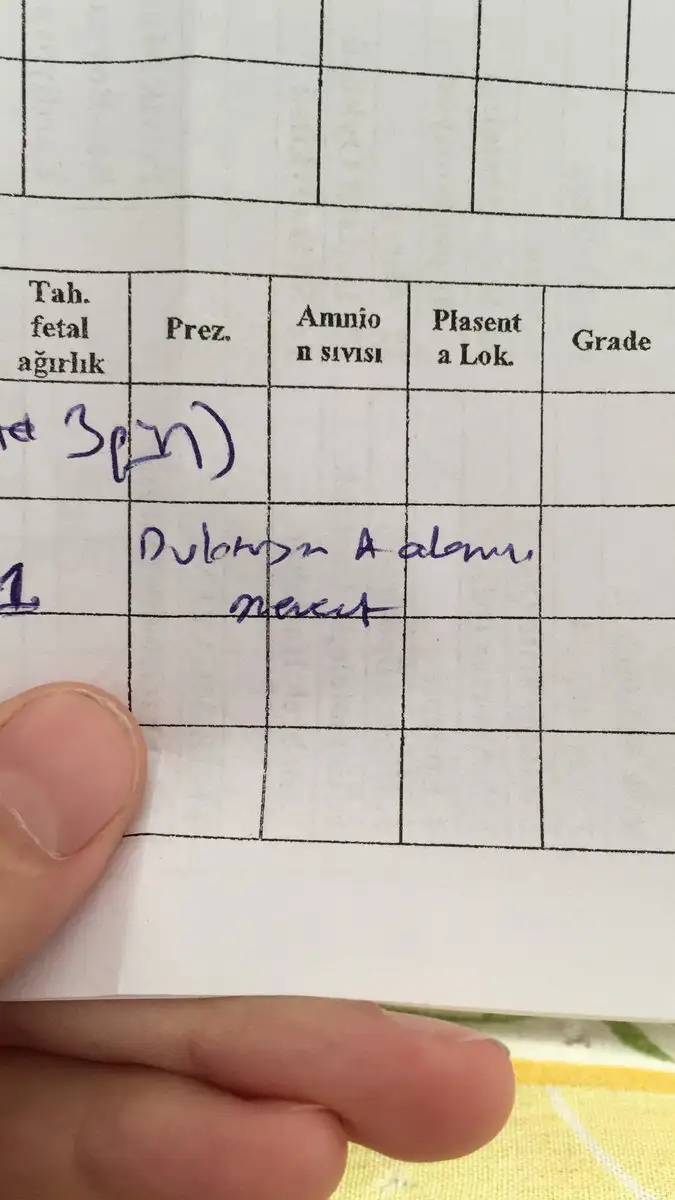 Tah.
fetal
ağırlık
Prez.
Amnio
n sıvısı
Plasent
a Lok.
Grade
3
1
A alanı
mevcut